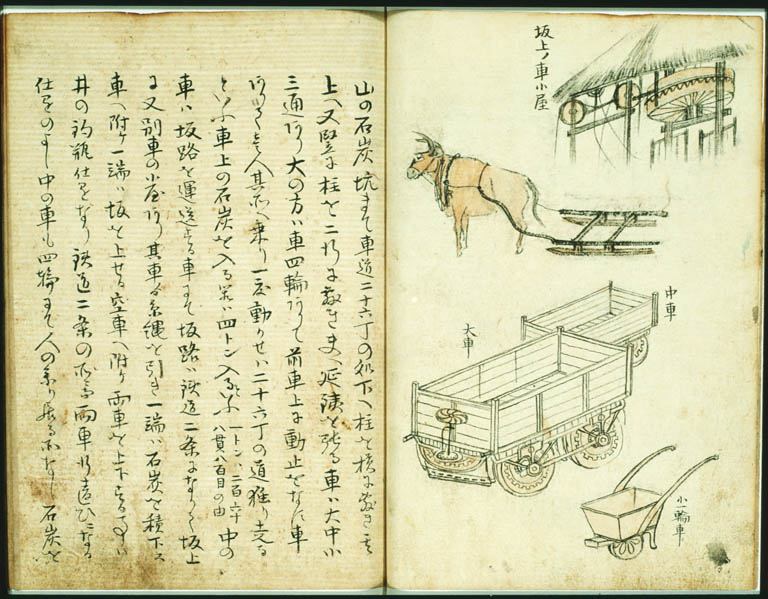 坂上ノ車小屋
中車
大車
小一輪車
山の石炭坑まて車道二十六丁の処下へ柱を横に敷き其
上へ又竪に柱を二行に敷き延鉄を張る車ハ大中小
三通あり大の方ハ車四輪ありて前車上に動止をなす車
あり人其所へ乗り一度動かせハ二十六丁の道独り走る
といふ車上の石炭を入る箱ハ四トン入るといふ
一トンハ二百六十
八貫八百目の由
中の
車ハ坂路を運送する車にて坂路ハ鉄道二条になりて坂上
に又別車の小屋あり其車より縄を引き一端ハ石炭を積下る
車へ附け一端ハ坂を上せる空車へ附け両車を上下する事ハ
井の釣瓶仕かけなり鉄道二条の所両車行違ひになる
仕かけのよし中の車も四輪にて人の乗り居る所なし石炭を